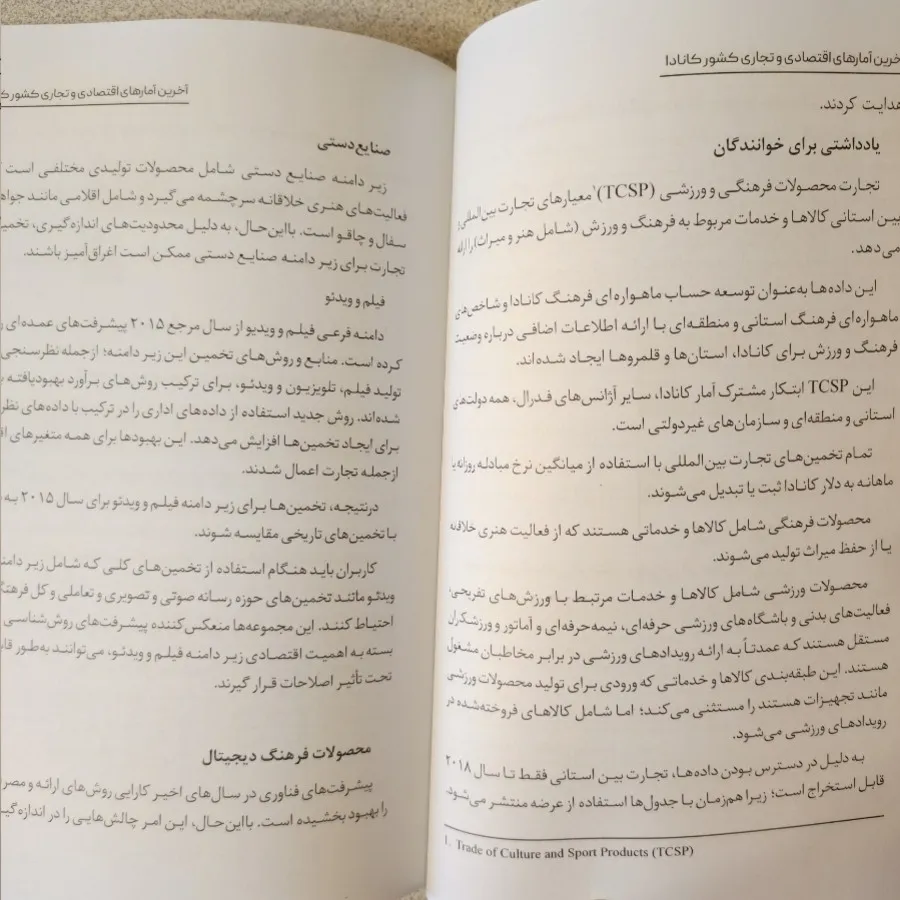 آخرین آمارهای اقتصادی و تجاری کشور کانادا
هدایت کردند.
یادداشتی برای خوانندگان
تجارت محصولات فرهنگی و ورزشی (TCSP)۱ معیارهای تجارت بین‌المللی و
بین استانی کالاها و خدمات مربوط به فرهنگ و ورزش (شامل هنر و میراث) را ارائه
می‌دهد.
این داده‌ها به‌عنوان توسعه حساب ماهواره‌ای فرهنگ کانادا و شاخص‌های
ماهواره‌ای فرهنگ استانی و منطقه‌ای با ارائه اطلاعات اضافی درباره وضعیت
فرهنگ و ورزش برای کانادا، استان‌ها و قلمروها ایجاد شده‌اند.
این TCSP ابتکار مشترک آمار کانادا، سایر آژانس‌های فدرال، همه دولت‌های
استانی و منطقه‌ای و سازمان‌های غیردولتی است.
تمام تخمین‌های تجارت بین‌المللی با استفاده از میانگین نرخ مبادله روزانه یا
ماهانه به دلار کانادا ثبت یا تبدیل می‌شوند.
محصولات فرهنگی شامل کالاها و خدماتی هستند که از فعالیت هنری خلاقانه
یا از حفظ میراث تولید می‌شوند.
محصولات ورزشی شامل کالاها و خدمات مرتبط با ورزش‌های تفریحی،
فعالیت‌های بدنی و باشگاه‌های ورزشی حرفه‌ای، نیمه‌حرفه‌ای و آماتور و ورزشکران
مستقل هستند که عمدتاً به ارائه رویدادهای ورزشی در برابر مخاطبان مشغول
هستند. این طبقه‌بندی کالاها و خدماتی که ورودی برای تولید محصولات ورزشی
مانند تجهیزات هستند را مستثنی می‌کند؛ اما شامل کالاهای فروخته‌شده در
رویدادهای ورزشی می‌شود.
به دلیل در دسترس بودن داده‌ها، تجارت بین استانی فقط تا سال ۲۰۱۸
قابل استخراج است؛ زیرا هم‌زمان با جدول‌ها استفاده از عرضه منتشر می‌شود.
1. Trade of Culture and Sport Products (TCSP)
آخرین آمارهای اقتصادی و تجاری کشور
صنایع‌دستی
زیر دامنه صنایع دستی شامل محصولات تولیدی مختلفی است
فعالیت‌های هنری خلاقانه سرچشمه می‌گیرد و شامل اقلامی مانند
سفال و چاقو است. بااین‌حال، به دلیل محدودیت‌های اندازه‌گیری،
تجارت برای زیر دامنه صنایع دستی ممکن است اغراق‌آمیز باشند.
فیلم و ویدئو
دامنه فرعی فیلم و ویدیو از سال مرجع ۲۰۱۵ پیشرفت‌های عمده‌ای
کرده است. منابع و روش‌های تخمین این زیر دامنه؛ ازجمله نظرسنجی
تولید فیلم، تلویزیون و ویدئو، برای ترکیب روش‌های برآورد بهبودیافته
شده‌اند. روش جدید استفاده از داده‌های اداری را در ترکیب با داده‌های
برای ایجاد تخمین‌ها افزایش می‌دهد. این بهبودها برای همه متغیرهای
ازجمله تجارت اعمال شدند.
درنتیجه، تخمین‌ها برای زیر دامنه فیلم و ویدئو برای سال ۲۰۱۵
با تخمین‌های تاریخی مقایسه شوند.
کاربران باید هنگام استفاده از تخمین‌های کلی که شامل زیر
ویدئو مانند تخمین‌های حوزه رسانه صوتی و تصویری و تعاملی و کل
احتیاط کنند. این مجموعه‌ها منعکس‌کننده پیشرفت‌های روش‌شناسی
بسته به اهمیت اقتصادی زیر دامنه فیلم و ویدئو، می‌توانند به‌طور
تحت تأثیر اصلاحات قرار گیرند.
محصولات فرهنگ دیجیتال
پیشرفت‌های فناوری در سال‌های اخیر کارایی روش‌های ارائه و
را بهبود بخشیده است. بااین‌حال، این امر چالش‌هایی را در